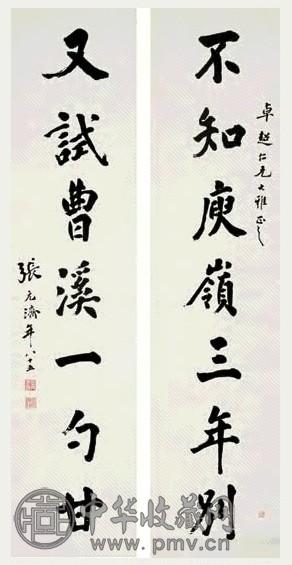 不知庾嶺三年別
卓越仁兄大雅正之
又試曹溪一勺甘
張元濟年八十五
中华收藏网
www.pmv.cn